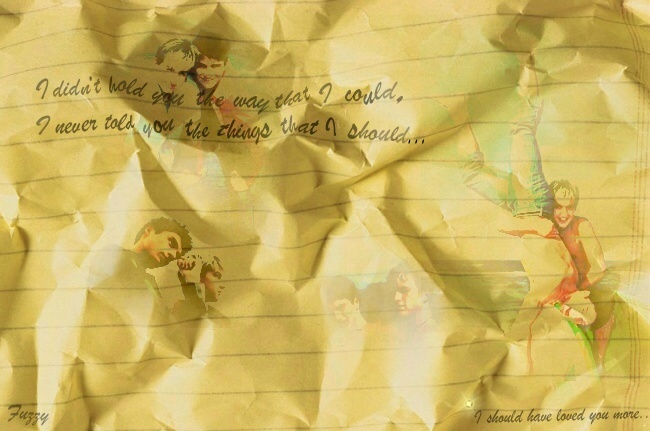 I didn't hold you the way that I could,
I never told you the things that I should...
Fuzzy
I should have loved you more..